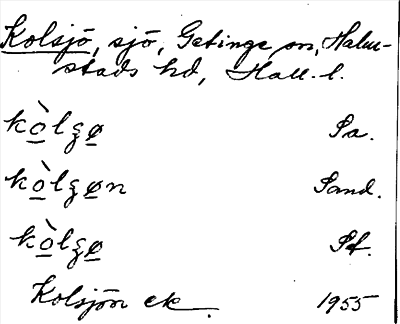 Kolsjö, sjö, Getinge sn, Halm-
stads hd, Hall. l.
kòlʒø Sa.
kòlʒøn Sand.
kòlʒø St.
Kolsjön ek. 1955